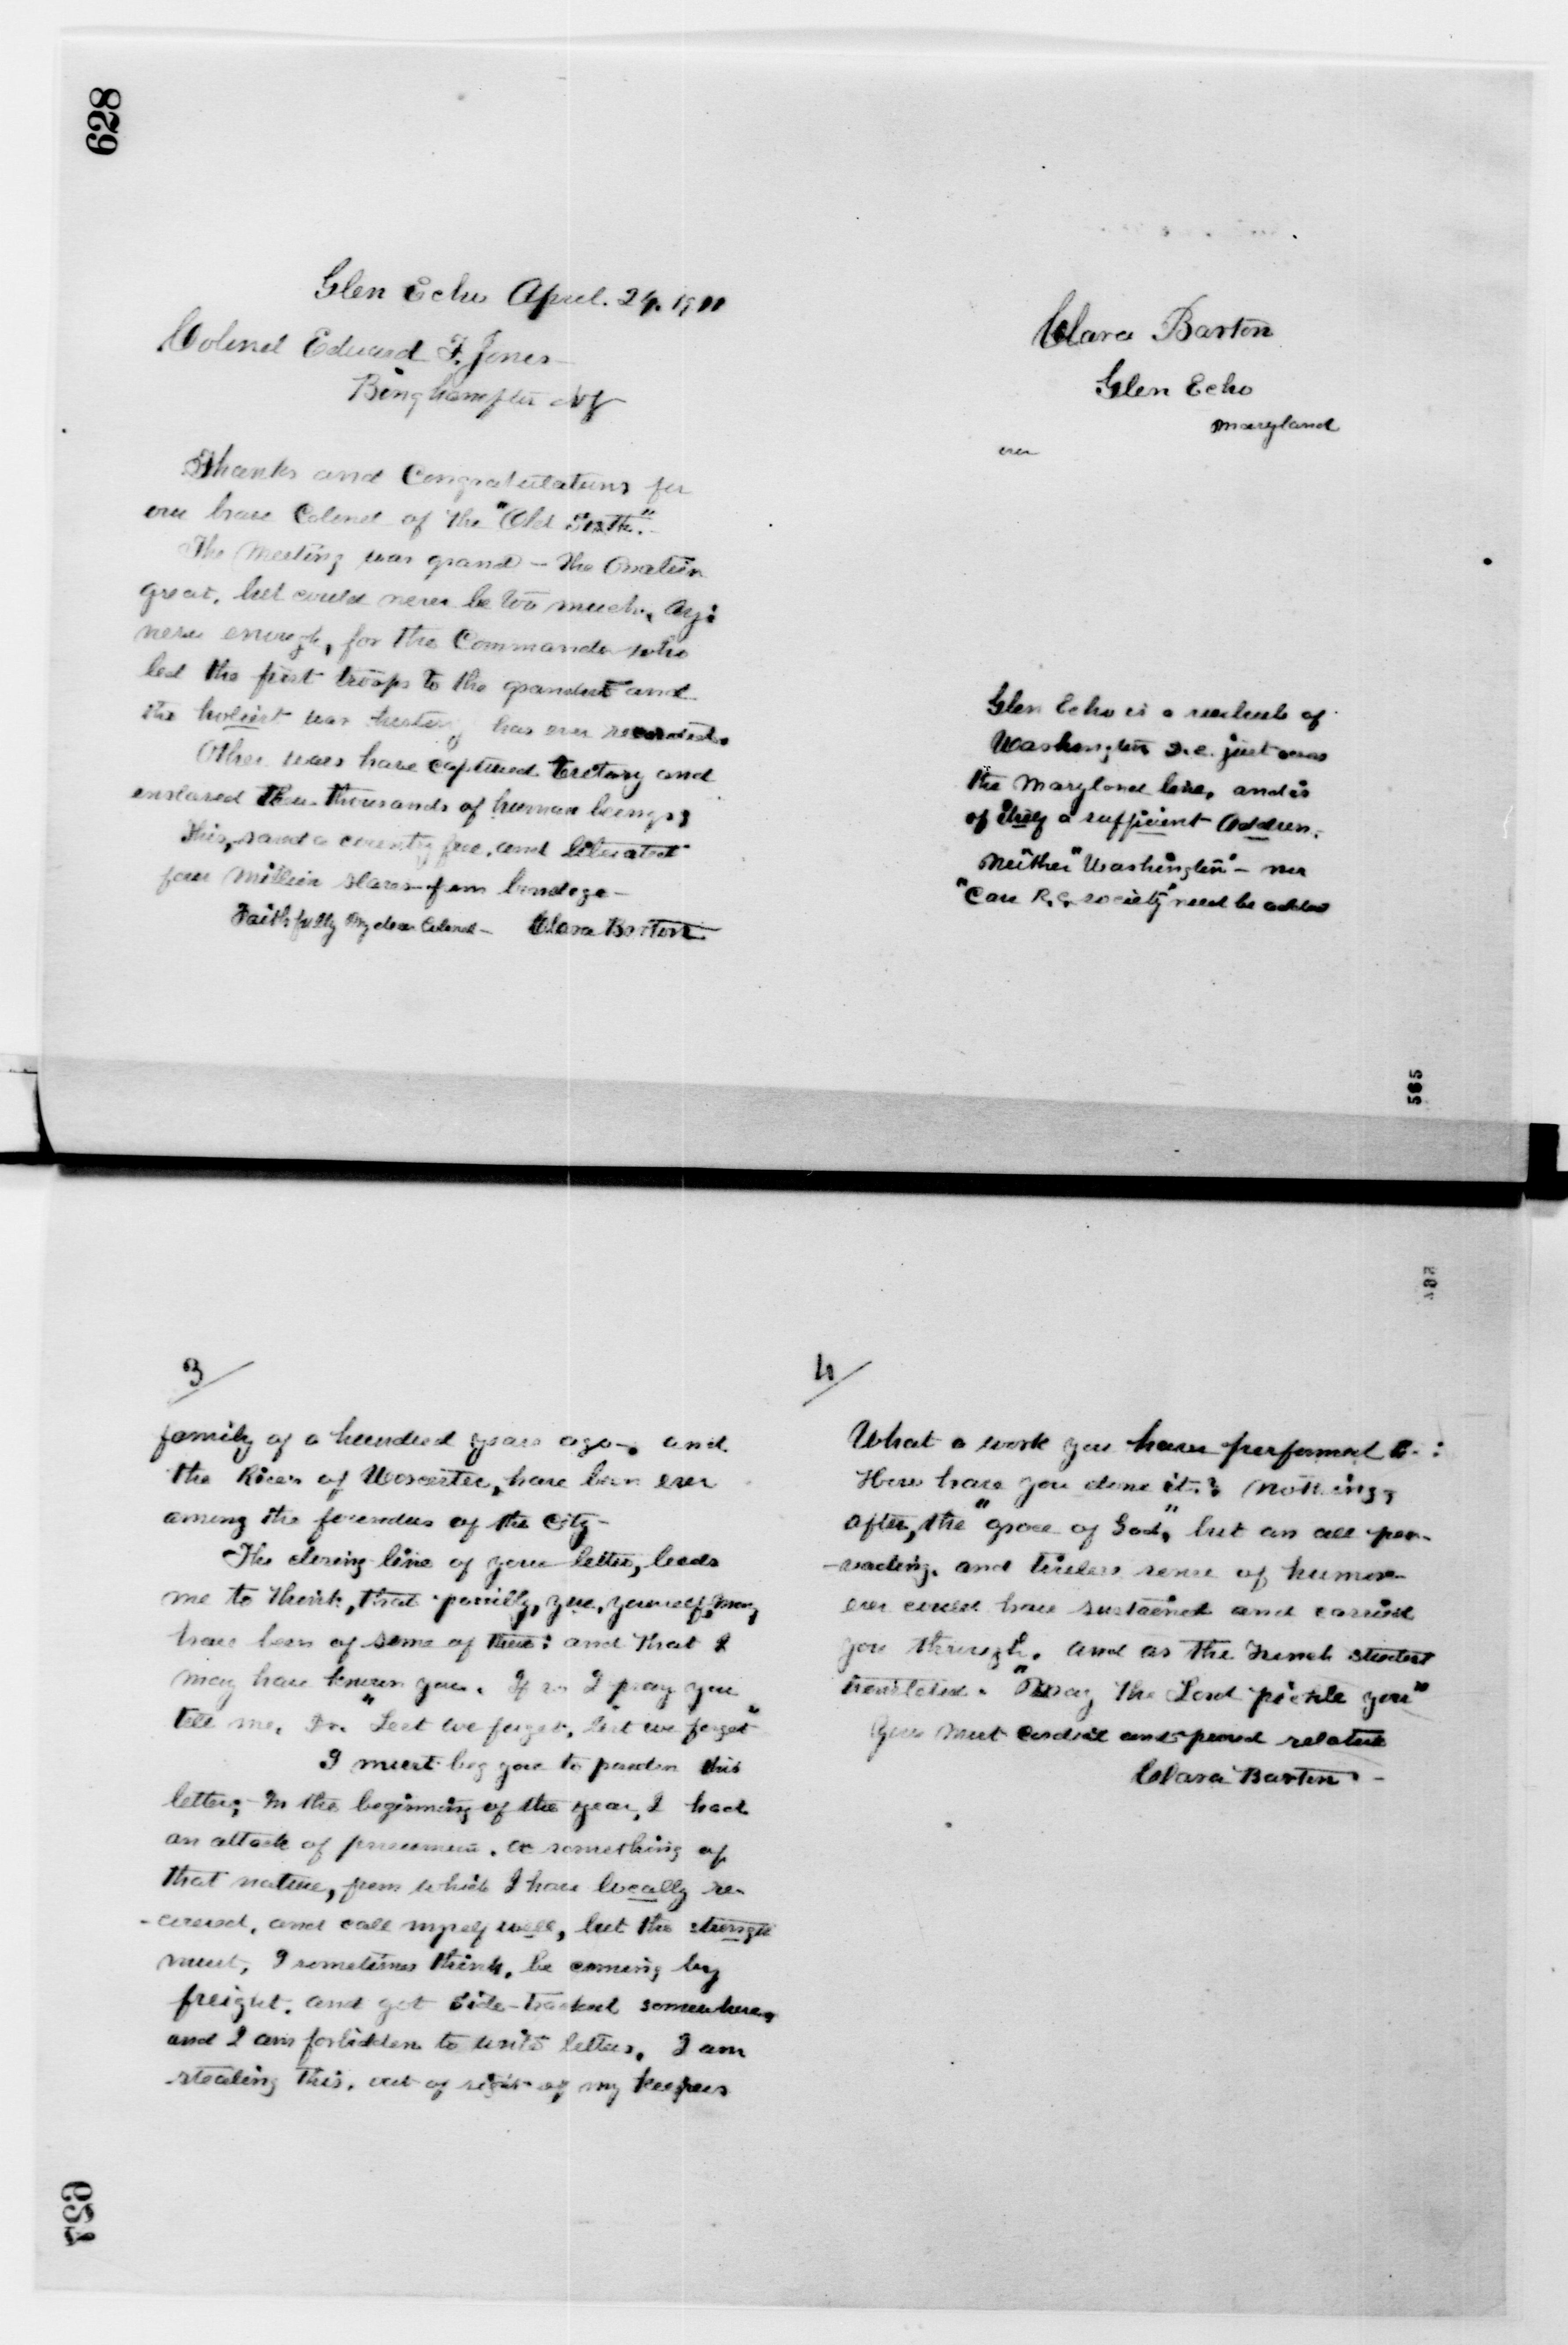 628
Glen Echo April. 24. 1911
Colonel Edward F. Jones
Binghampton NY
Thanks and Congratulations for
our brave Colonel of the "Old Sixth."
The Meeting was grand - the Ovation
great, but could never be too much, Aye:
never enough, for the Commander who
led the first troops to the grandest and
the holiest war history has ever recorded.
Other wars have captured teretory and
enslaved thousands of human beings;
This, saved a country free, and liberated
four Million slaves from bondage -
Faithfully My dear Colonel - Clara Barton
Clara Barton
Glen Echo
Maryland
over
Glen Echo is a suburb of
Washington D.C. just over
the Maryland line, and is
of itself a sufficient Address.
Neither "Washington" - nor
"Care R.C. society" need be added
565
3/
family of a hundred years ago -, and
the Rices of Worcester, have been ever
among the founders of the City -
The closing line of your letter, leads
me to think, that possibly, you, yourself, may
have been of some of these: and that I
may have known you. If so I pray you
tell me, "Lest we forget, lest we forget"
I must beg you to pardon this
letter; - In the beginning of the year, I had
an attack of pneumonia, or something of
that nature, from which I have locally re-
-covered, and call myself well, but the strength
must, I sometimes think, be coming by
freight, and got side-tracked somewhere,
and I am forbidden to write letters. I am
stealing this, out of sight of my keepers
4/
What a work you have performed :
How have you done it? Nothing,
after, the "grace of God," but an all per-
-vading, and tireless sense of humor
ever could have sustained and carried
you through. And as the French student
translated. "May the Lord pickle you"
Your most cordial and proud relative
Clara Barton -
627